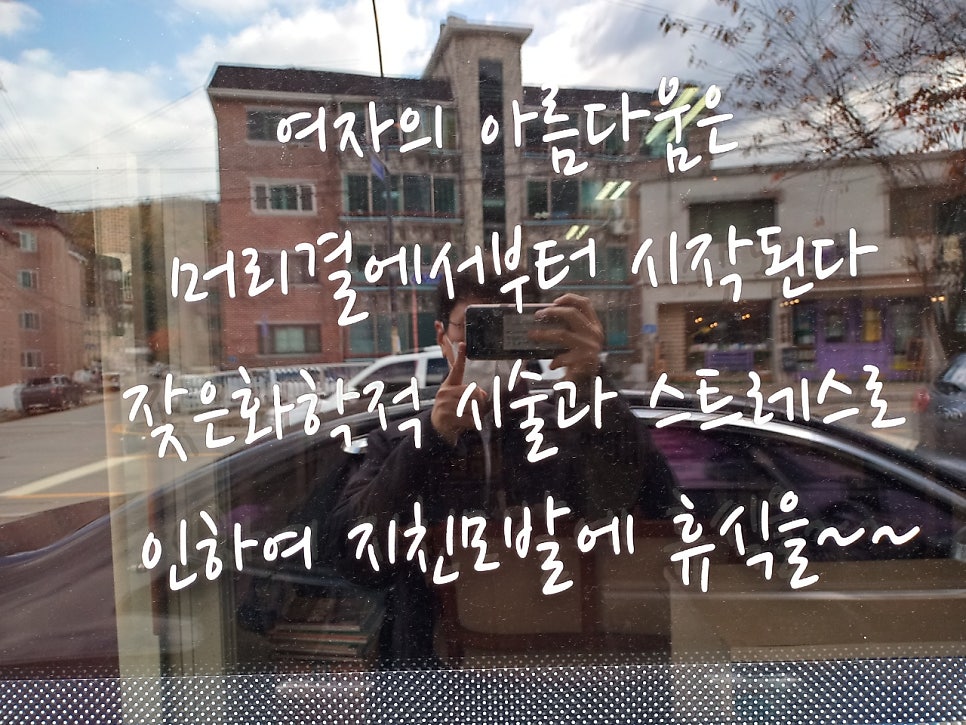 여자의 아름다움은
머리결에서부터 시작된다
잦은화학적 시술과 스트레스로
인하여 지친모발에 휴식을~~